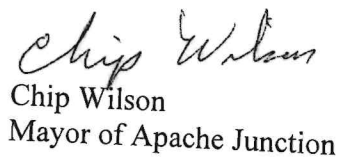 Chip Wilson
Chip Wilson
Mayor of Apache Junction